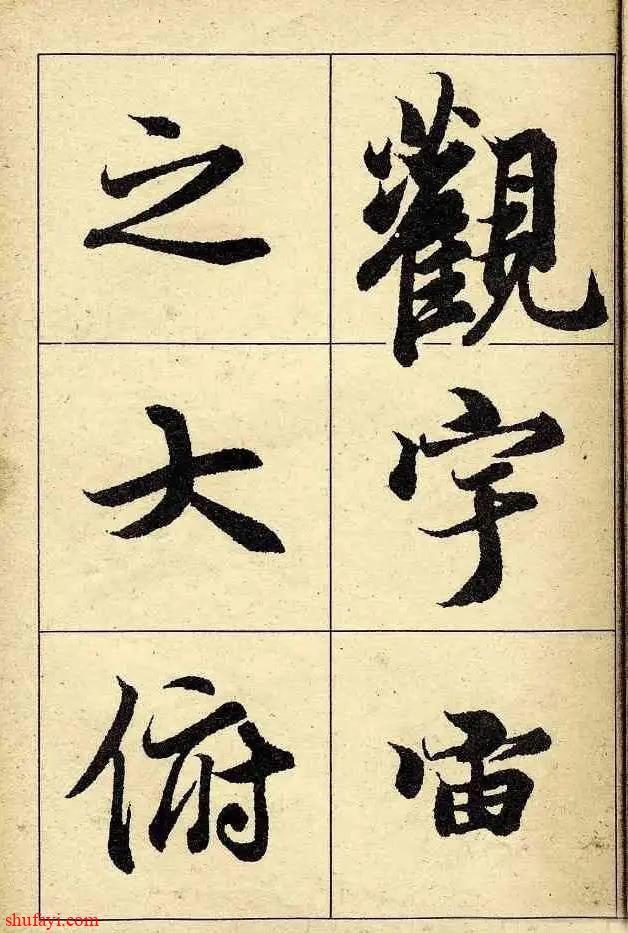 觀宇宙
之大俯
shufayi.com